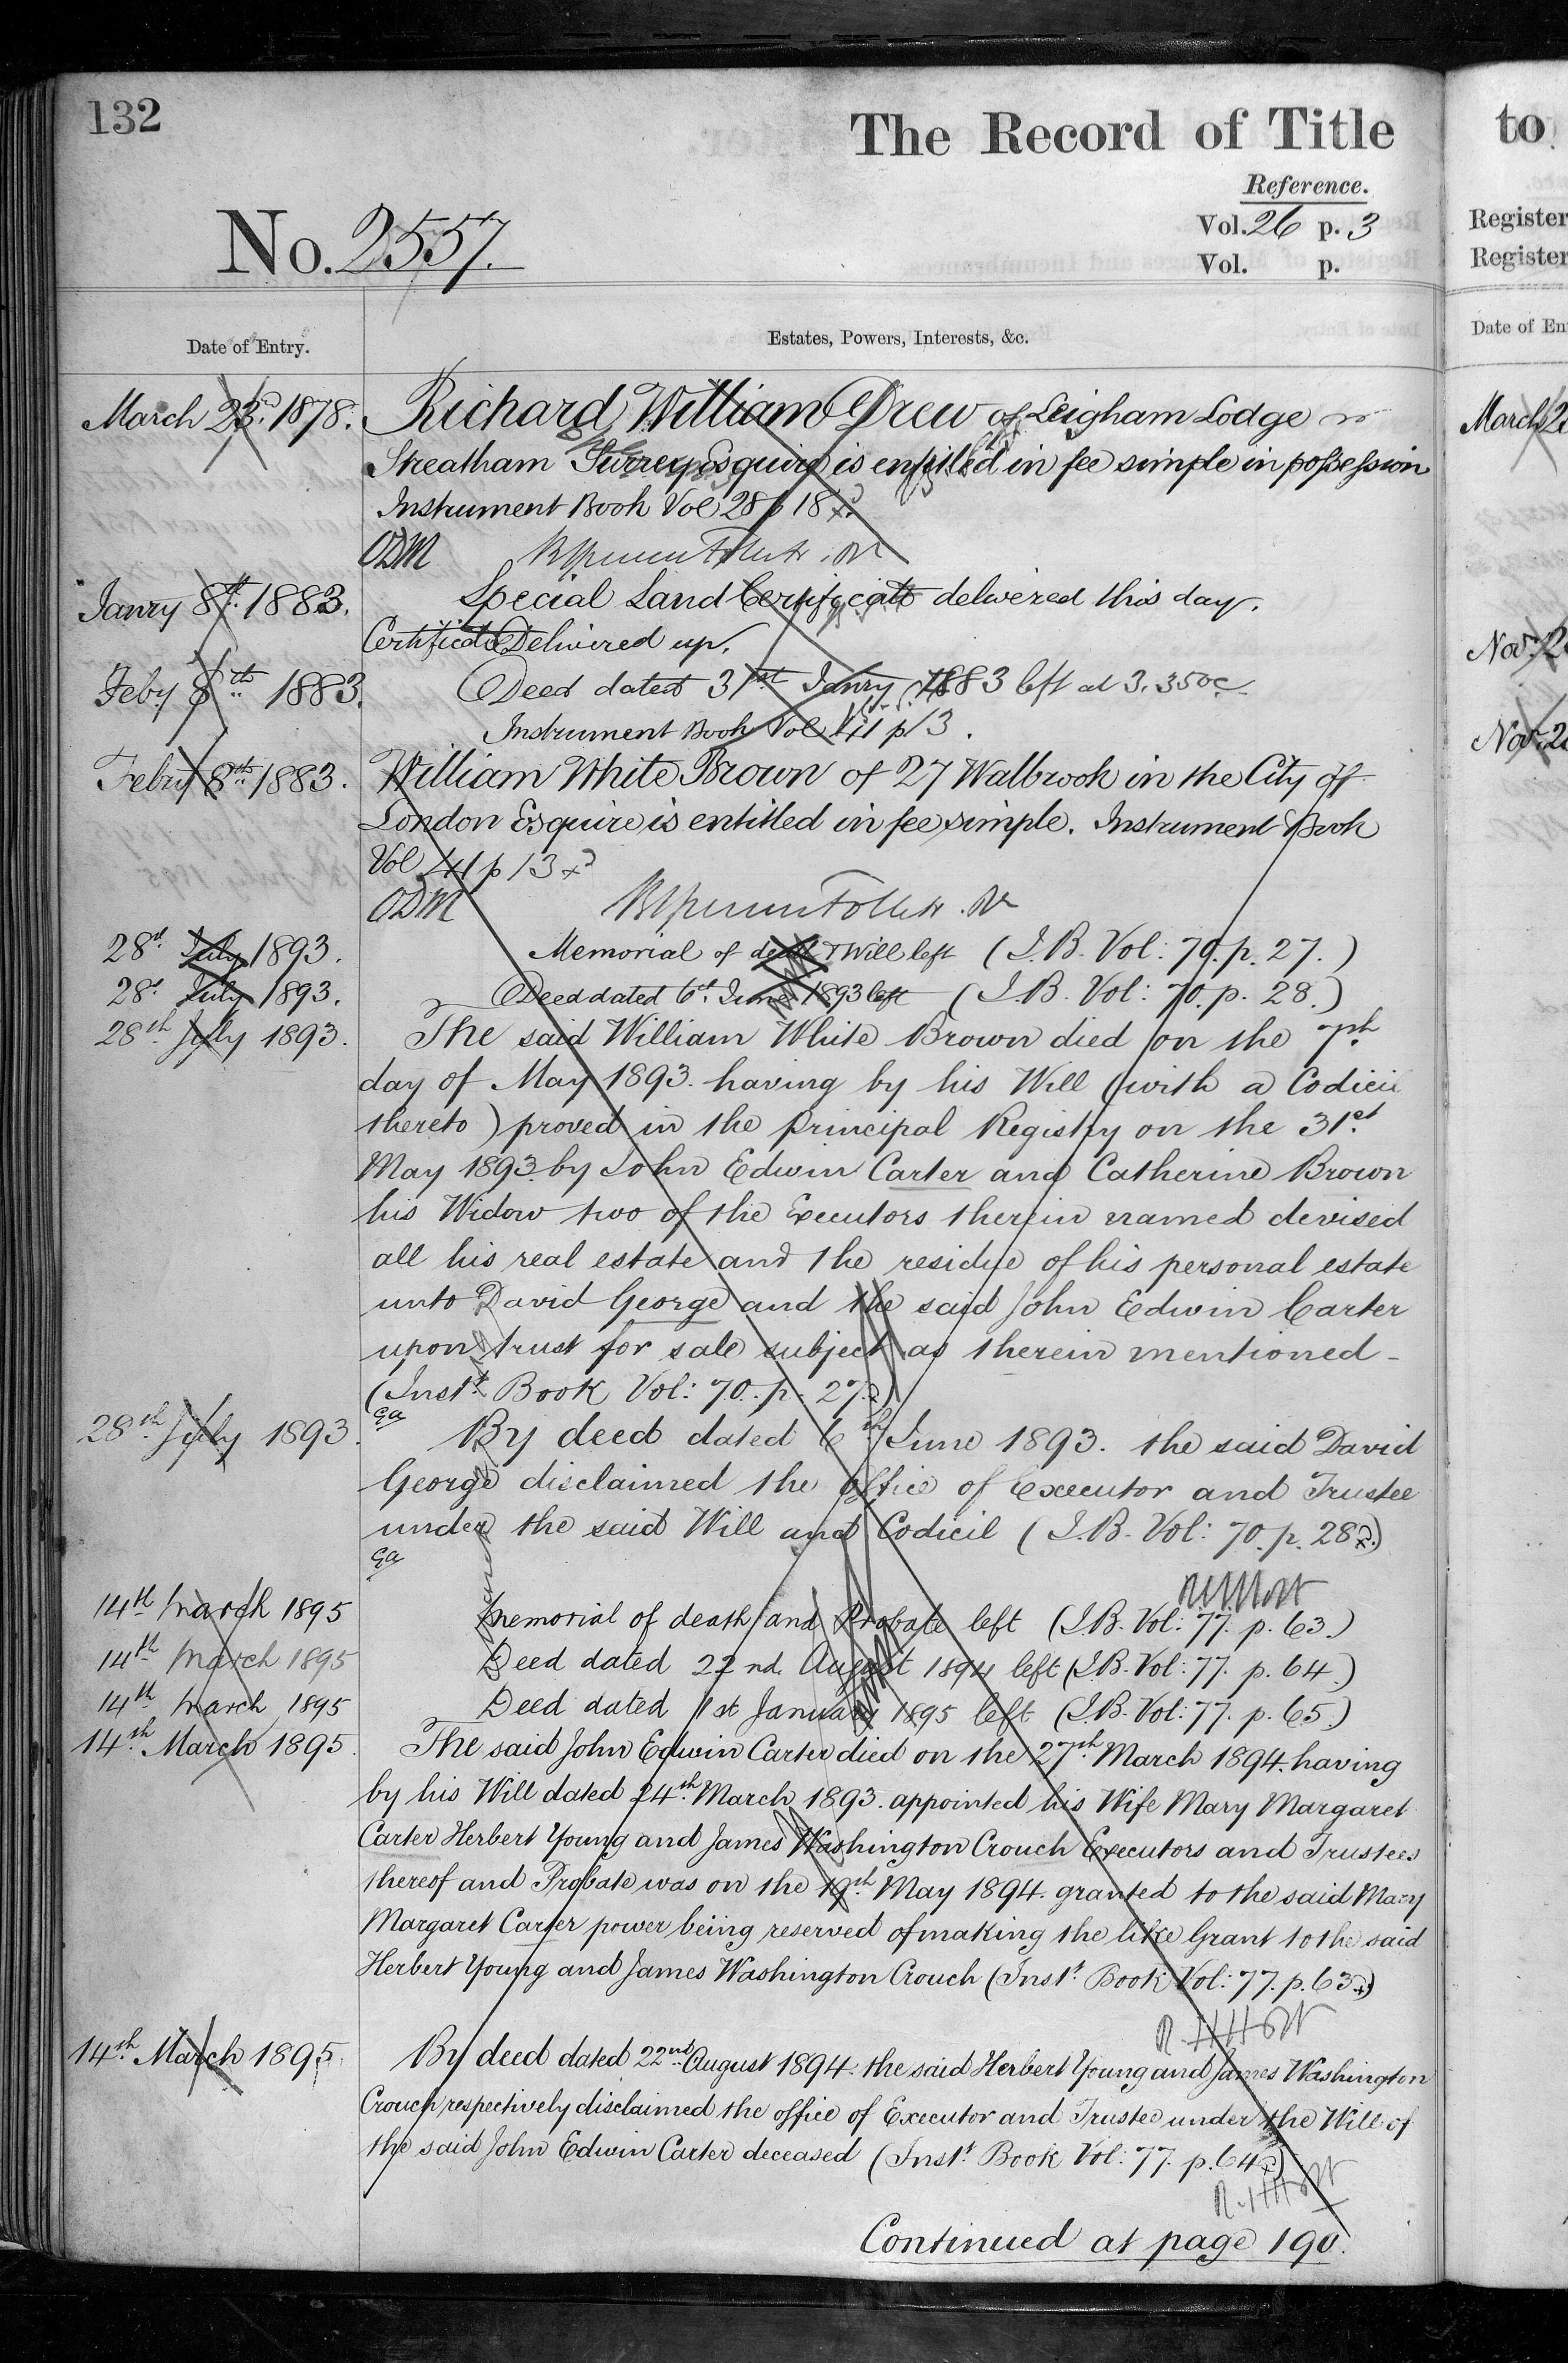 132
The Record of Title
Reference.
No. 2557.
Vol. 26 p. 3
Vol. p.
Date of Entry.
Estates, Powers, Interests, &c.
March 23rd 1878. Richard William Drew of Leigham Lodge
Streatham Surrey Esquire is entitled in fee simple in possession
Instrument Book Vol 28 p 18
ODM
Janry 8th 1883. Special Land Certificate delivered this day.
Certificate Delivered up.
Feby. 8th 1883. Deed dated 31st Janry 1883 left at 3.35
Instrument Book Vol 41 p 13.
Febry 8th 1883. William White Brown of 27 Walbrook in the City of
London Esquire is entitled in fee simple. Instrument Book
Vol 41 p 13
ODM
28th July 1893. Memorial of death & Will left (I.B. Vol: 70. p. 27.)
28th July 1893. Deed dated 6th June 1893 left (I.B. Vol: 70. p. 28.)
28th July 1893. The said William White Brown died on the 7th
day of May 1893. having by his Will (with a Codicil
thereto) proved in the Principal Registry on the 31st
May 1893. by John Edwin Carter and Catherine Brown
his Widow two of the Executors therein named devised
all his real estate and the residue of his personal estate
unto David George and the said John Edwin Carter
upon trust for sale subject as therein mentioned -
(Inst. Book Vol: 70. p. 27)
28th July 1893. By deed dated 6th June 1893. the said David
George disclaimed the office of Executor and Trustee
under the said Will and Codicil (I.B. Vol: 70. p. 28)
14th March 1895 Memorial of death and Probate left (I.B. Vol: 77. p. 63.)
14th March 1895 Deed dated 22nd. August 1894 left (I.B. Vol: 77. p. 64.)
14th March 1895 Deed dated 1st January 1895 left (I.B. Vol: 77. p. 65.)
14th March 1895. The said John Edwin Carter died on the 27th March 1894. having
by his Will dated 24th March 1893. appointed his Wife Mary Margaret
Carter Herbert Young and James Washington Crouch Executors and Trustees
thereof and Probate was on the 19th May 1894. granted to the said Mary
Margaret Carter power being reserved of making the like Grant to the said
Herbert Young and James Washington Crouch (Inst. Book Vol: 77. p. 63)
14th March 1895. By deed dated 22nd August 1894. the said Herbert Young and James Washington
Crouch respectively disclaimed the office of Executor and Trustee under the Will of
the said John Edwin Carter deceased (Inst. Book Vol: 77. p. 64)
Continued at page 190.
to
Register
Register
Date of En
March 2
Nov. 2
Nov. 2